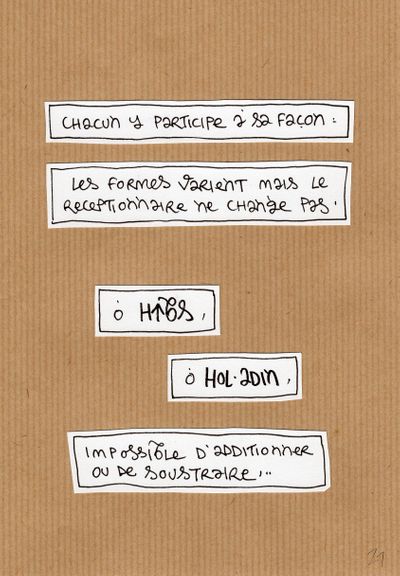 CHACUN Y PARTICIPE À SA FAÇON :
LES FORMES VARIENT MAIS LE
RECEPTIONNAIRE NE CHANGE PAS.
Ò
Ò HOL·ADIN,
IMPOSSIBLE D'ADDITIONNER
OU DE SOUSTRAIRE,..